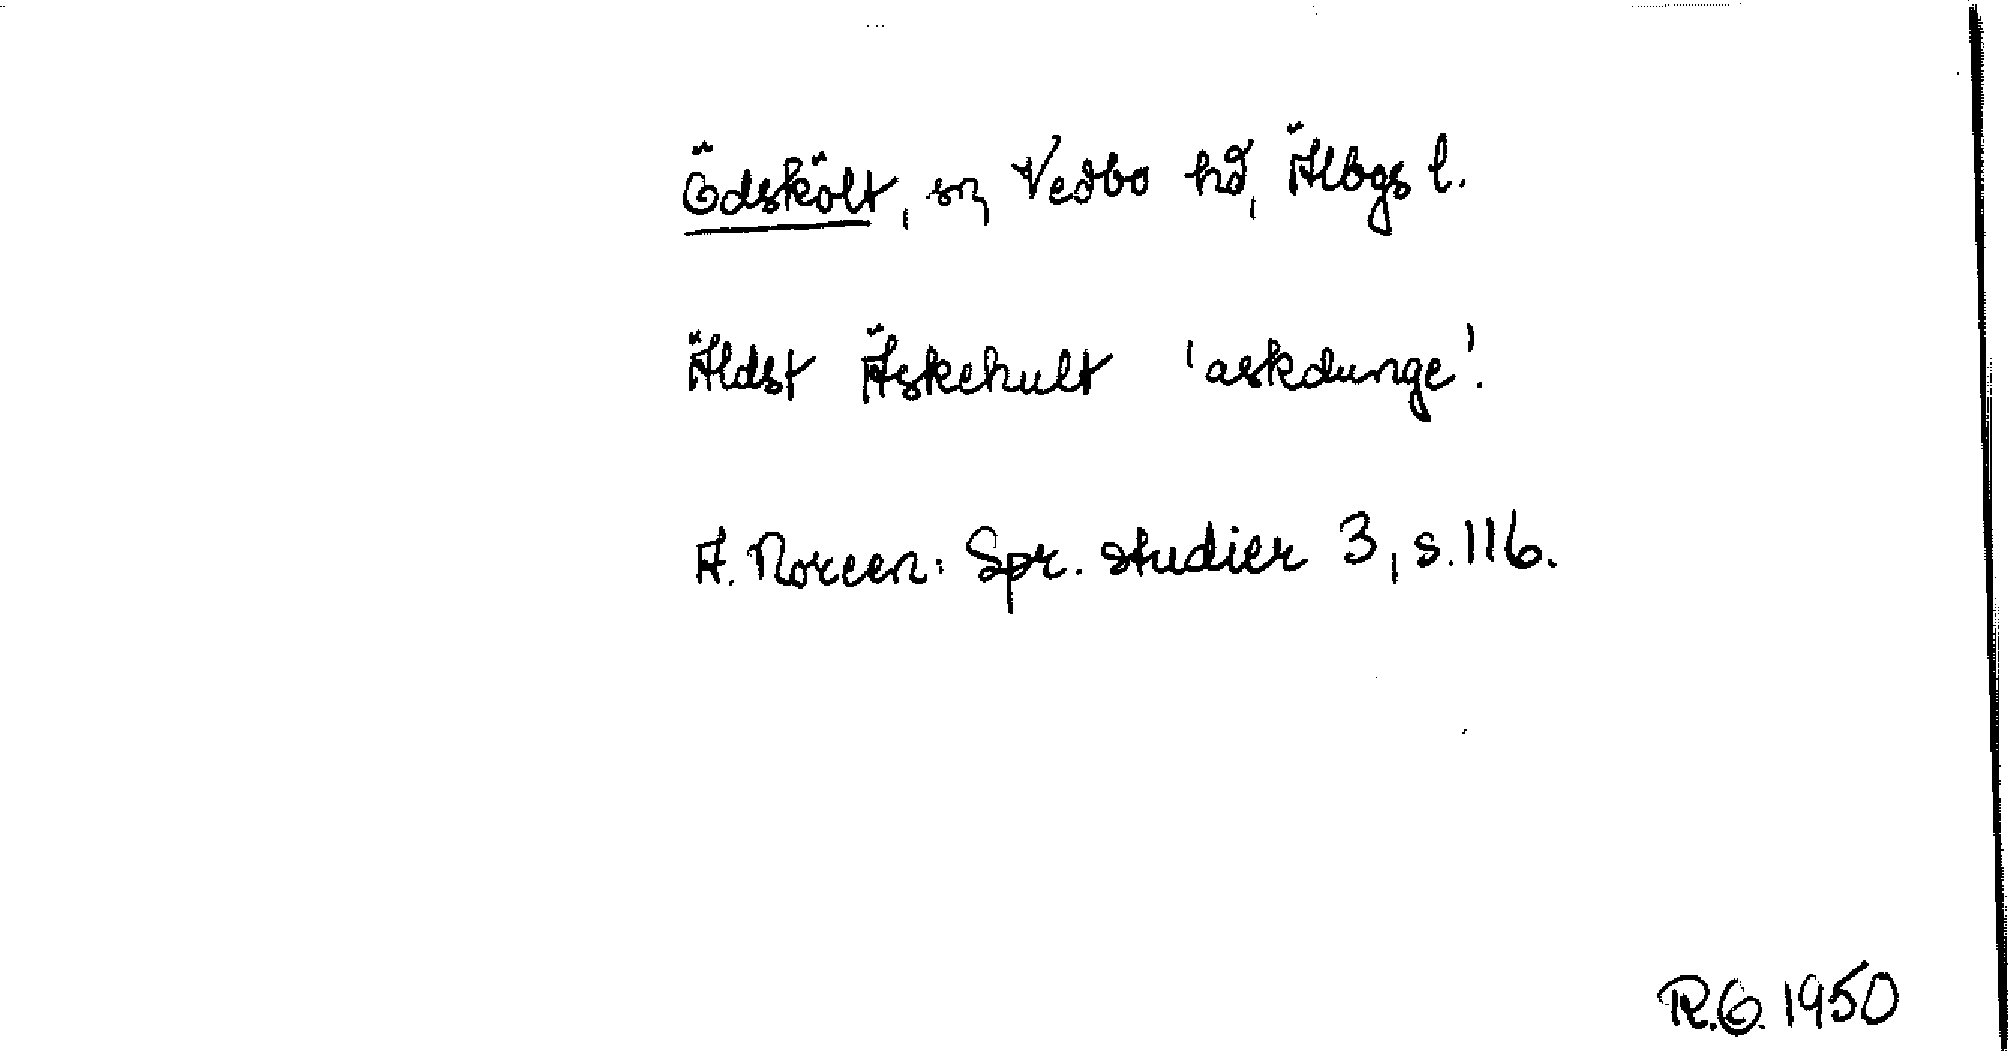 Ödskölt, sn, Vedbo hd, Älbgs l.
Äldst Äskehult 'askdunge'.
A. Noreen: Spr. studier 3, s. 116.
R.Ö. 1950